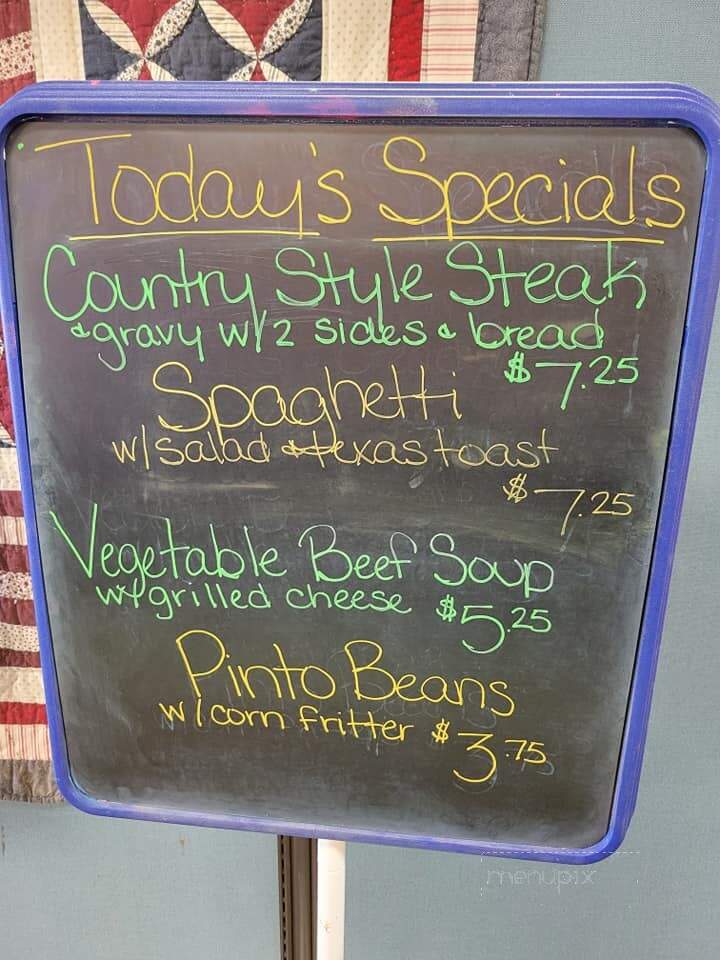 Today's Specials
Country Style Steak
& gravy w/2 sides & bread
$7.25
Spaghetti
w/salad & texas toast
$7.25
Vegetable Beef Soup
w/grilled cheese $5.25
Pinto Beans
w/corn fritter $3.75
menupix